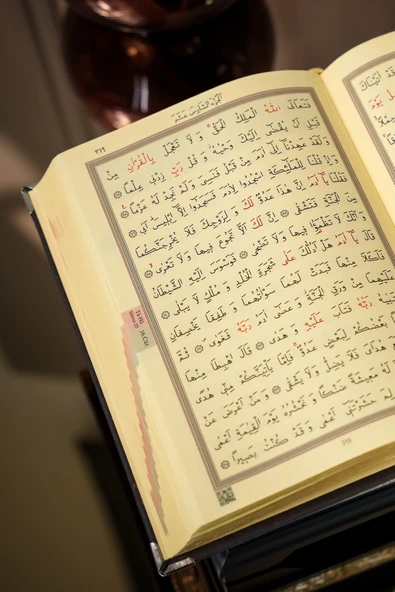 الجزء السادس عشر
٣١٩
فَتَعَالَى اللّٰهُ الْمَلِكُ الْحَقُّ وَلَا تَعْجَلْ بِالْقُرْاٰنِ مِنْ
قَبْلِ اَنْ يُقْضٰٓى اِلَيْكَ وَحْيُهُ وَقُلْ رَبِّ زِدْنٖى عِلْمًا
وَلَقَدْ عَهِدْنَٓا اِلٰٓى اٰدَمَ مِنْ قَبْلُ فَنَسِىَ وَلَمْ نَجِدْ لَهُ عَزْمًا
وَاِذْ قُلْنَا لِلْمَلٰٓئِكَةِ اسْجُدُوا لِاٰدَمَ فَسَجَدُٓوا اِلَّٓا اِبْلٖيسَ اَبٰى
فَقُلْنَا يَٓا اٰدَمُ اِنَّ هٰذَا عَدُوٌّ لَكَ وَلِزَوْجِكَ فَلَا يُخْرِجَنَّكُمَا
مِنَ الْجَنَّةِ فَتَشْقٰى اِنَّ لَكَ اَلَّا تَجُوعَ فٖيهَا وَلَا تَعْرٰى
وَاَنَّكَ لَا تَظْمَؤُا فٖيهَا وَلَا تَضْحٰى فَوَسْوَسَ اِلَيْهِ الشَّيْطَانُ
قَالَ يَٓا اٰدَمُ هَلْ اَدُلُّكَ عَلٰى شَجَرَةِ الْخُلْدِ وَمُلْكٍ لَا يَبْلٰى
فَاَكَلَا مِنْهَا فَبَدَتْ لَهُمَا سَوْاٰتُهُمَا وَطَفِقَا يَخْصِفَانِ
عَلَيْهِمَا مِنْ وَرَقِ الْجَنَّةِ وَعَصٰٓى اٰدَمُ رَبَّهُ فَغَوٰى ثُمَّ
رَبُّهُ فَتَابَ عَلَيْهِ وَهَدٰى قَالَ اهْبِطَا مِنْهَا
بَعْضُكُمْ لِبَعْضٍ عَدُوٌّ فَاِمَّا يَاْتِيَنَّكُمْ مِنّٖى هُدًى
هُدَاىَ فَلَا يَضِلُّ وَلَا يَشْقٰى وَمَنْ اَعْرَضَ عَنْ
لَهُ مَعٖيشَةً ضَنْكًا وَنَحْشُرُهُ يَوْمَ الْقِيٰمَةِ اَعْمٰى
لِمَ حَشَرْتَنٖٓى اَعْمٰى وَقَدْ كُنْتُ بَصٖيرًا